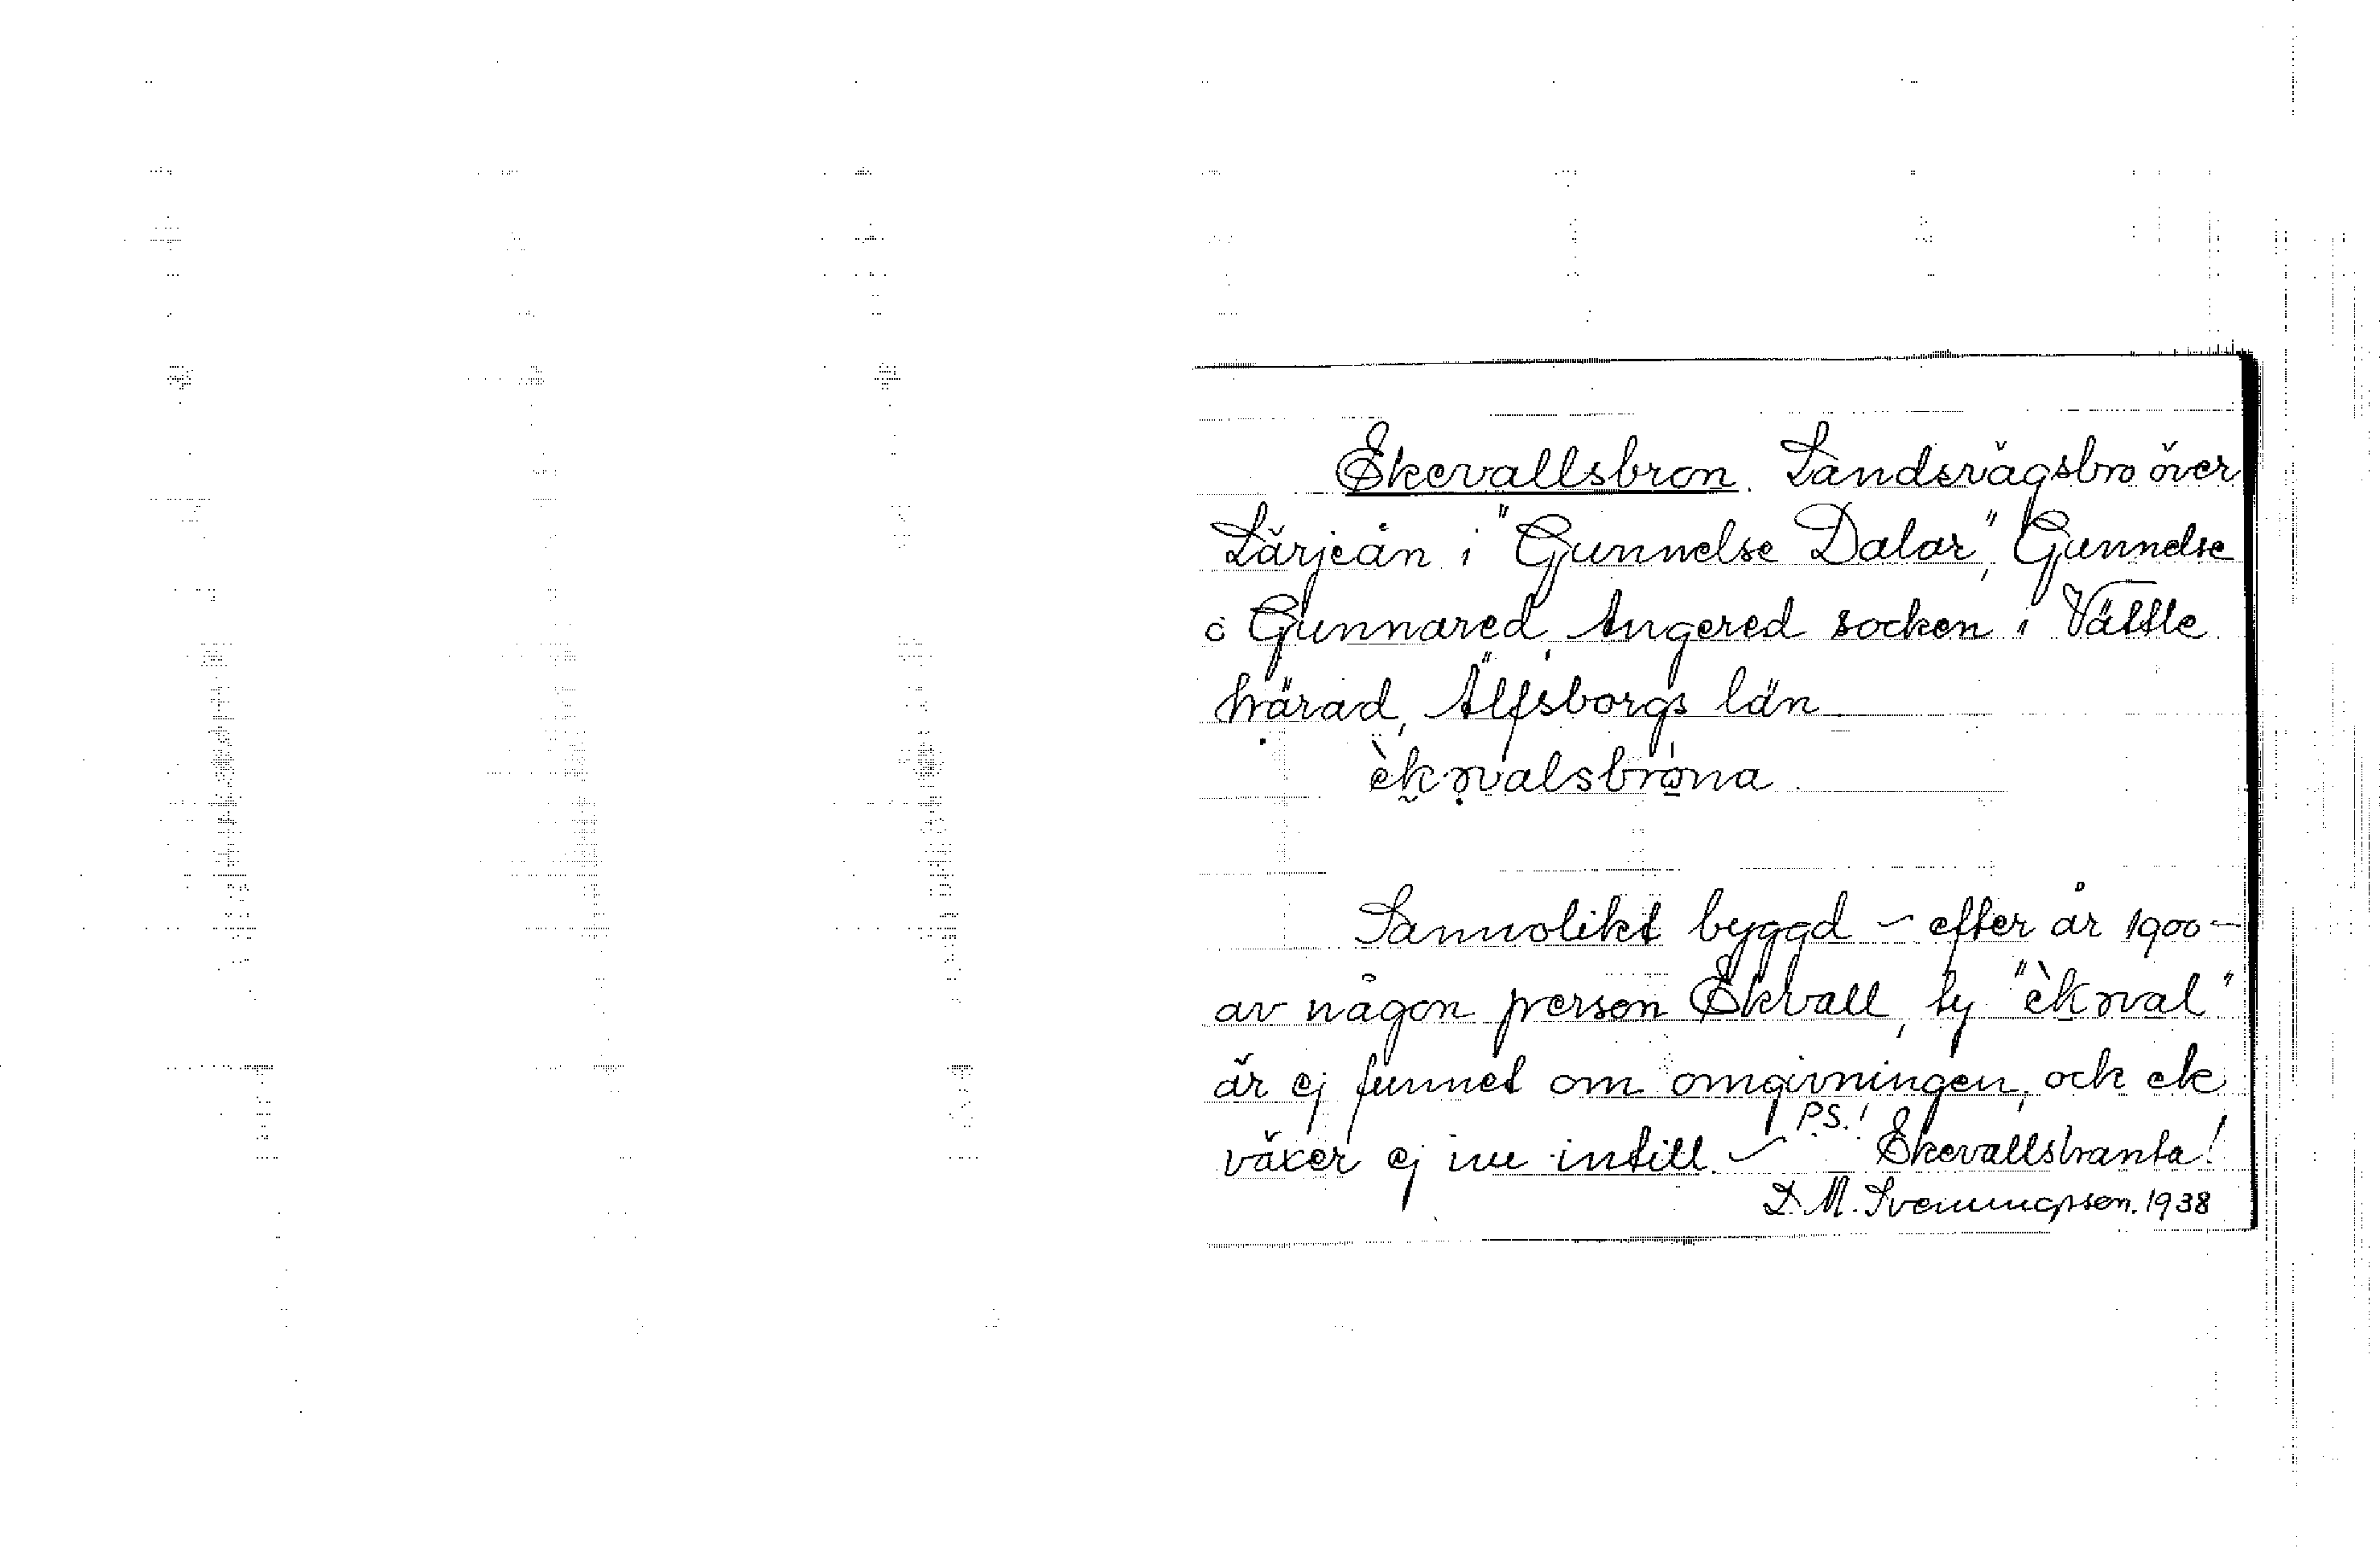 Ekevallsbron. Landsvägsbro över
Lärjeån i "Gunnelse Dalar", Gunnelse
o Gunnared, Angered socken i Vättle
härad, Älfsborgs län
èkəvalsbrǫna.
Sannolikt byggd - efter år 1900 -
av någon person Ekvall, ty "èkəval"
är ej funnet om omgivningen, och ek
växer ej nu intill. - P.S.! Ekevallsbranta!
D. M. Svenungsson. 1938